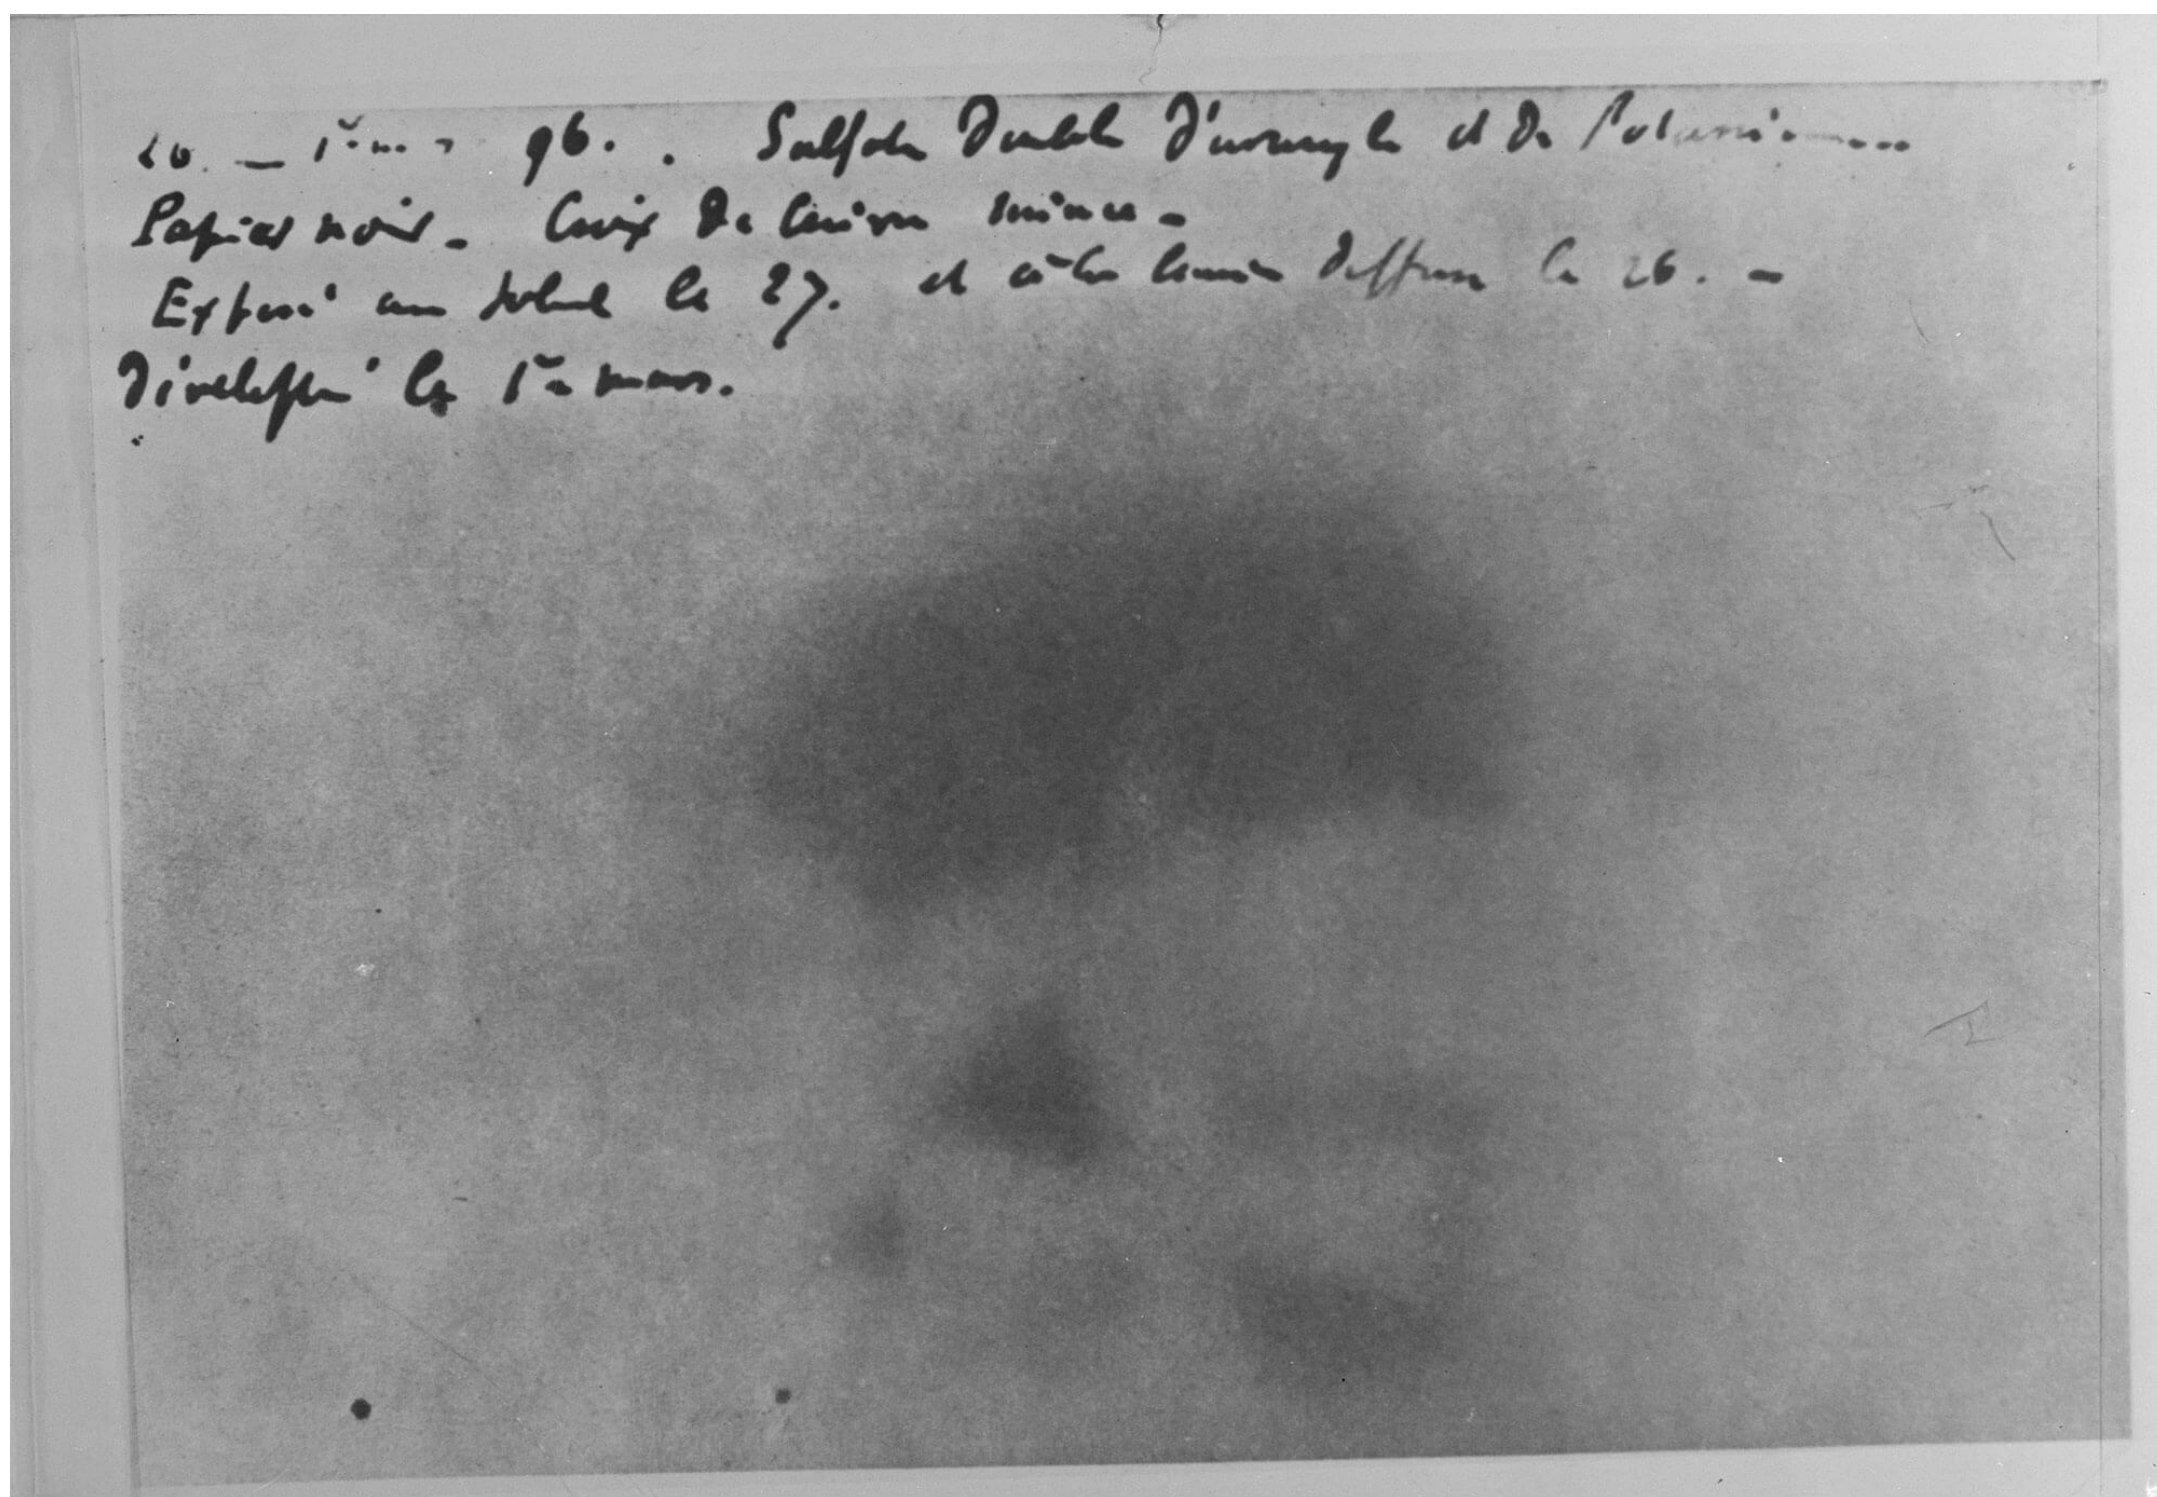 26. — 1er mars 96. . Sulfate Double D'uranyle et de Potassium
Papier noir. - Croix de Cuivre mince -
Exposé au soleil le 27. et à la lumière diffuse le 26. -
Développé le 1er mars.